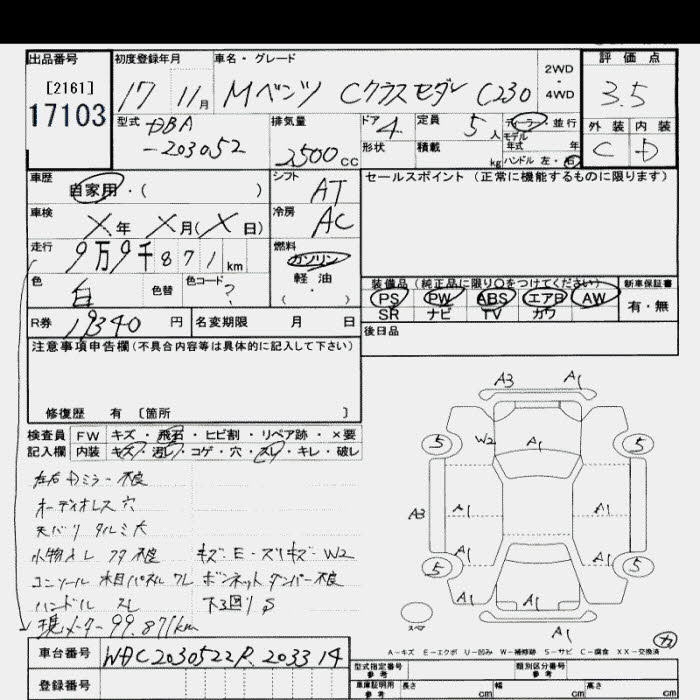 出品番号 初度登録年月 車名・グレード 2WD・4WD 評価点
[2161]
17103
17 11月 Mベンツ Cクラスセダン C230 3.5
型式 DBA-203052 排気量 2500cc ドア 4 定員 5人 ディーラー・並行
形状 積載 kg モデル年式 年 ハンドル 左・右
外装 内装
C D
車歴 自家用・( ) シフト AT セールスポイント(正常に機能するものに限ります)
車検 X年 X月(X日) 冷房 AC
走行 9万9千871km 燃料 ガソリン
軽油
・( )
色 白 色替 色コード ?
装備品(純正品に限り○をつけてください) 新車保証書
PS PW ABS エアB AW 有・無
SR ナビ TV カワ
R券 19340円 名変期限 月 日
後日品
注意事項申告欄(不具合内容等は具体的に記入して下さい)
修復歴 有〔箇所 〕
検査員 FW キズ・飛石・ヒビ割・リペア跡・×要
記入欄 内装 キズ・汚レ・コゲ・穴・スレ・キレ・破レ
左右Dミラー不良
オーディオレス穴
天バリ タルミ大
小物入レ フタ不良 キズ・E・スリキズ・W2
コンソール木目パネルワレ ボンネットダンパー不良
ハンドル スレ 下回りS
現メーター99.871km
A3 A1
5 W2 A1 5
A3 A1 A1
A1 A1
5 5
A1 A1
スペア A1
A-キズ E-エクボ U-凹み W-補修跡 S-サビ C-腐食 XX-交換済
車台番号 WDC2030522R.203314
登録番号
型式指定番号 参考 類別区分番号 参考
車庫証明用 参考 長さ cm 幅 cm 高さ cm